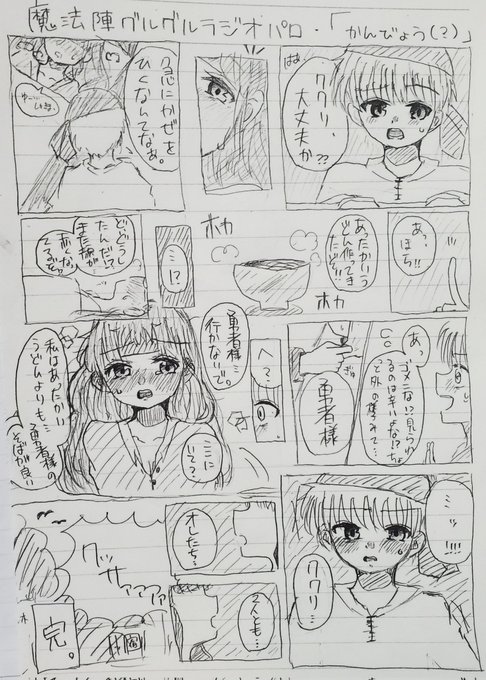 魔法陣グルグルラジオパロ・「かんびょう(?)」
はぁ
ククリ、
大丈夫か??
急にかぜを
ひくなんてなぁ。
あっ、
ほら!!
あったかいう
どん作ってき
たぞ…
ホカ
ホカ
ミ!?
どどうし
たんだ!?
また顔が
赤くなっ
てるぞ…
あっ
ゴメンな!?見られ
るのは辛いよな!?ちょ
っと外の様みて…
勇者様
へ?
勇者様…
行かないで。
ここに
いて?…
私はあったかい
うどんよりも…
勇者様の
そばが良い
ミッ…!!!!
ククリ…
オレたち、
2人とも…
クッ
サァァァ!?
完。